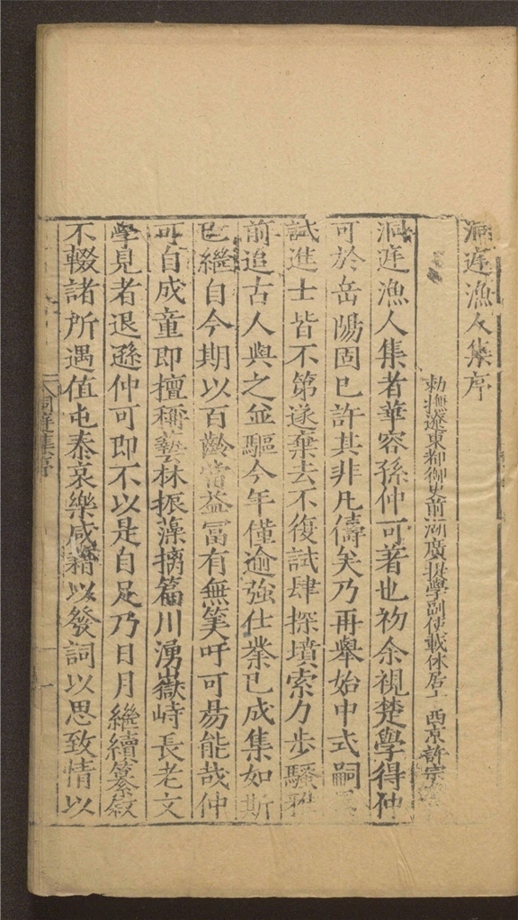 洞庭漁人集序
勑撫遼東都御史前湖廣提學副使載休居士西京許宗
洞庭漁人集者華容孫仲可著也初余視楚學得仲
可於岳陽固已許其非凡儔矣乃再舉始中式嗣
試進士皆不第遂棄去不復試肆探墳索力步騷雅
前追古人與之並驅今年僅逾強仕業已成集如斯
已繼自今期以百齡當益富有無筭吁可昜能哉仲
可自成童即擅稱藝林振藻摛篇川湧嶽峙長老文
學見者退遜仲可即不以是自足乃日月繼續纂叙
不輟諸所遇值屯泰哀樂咸藉以發詞以思致情以
洞庭集序